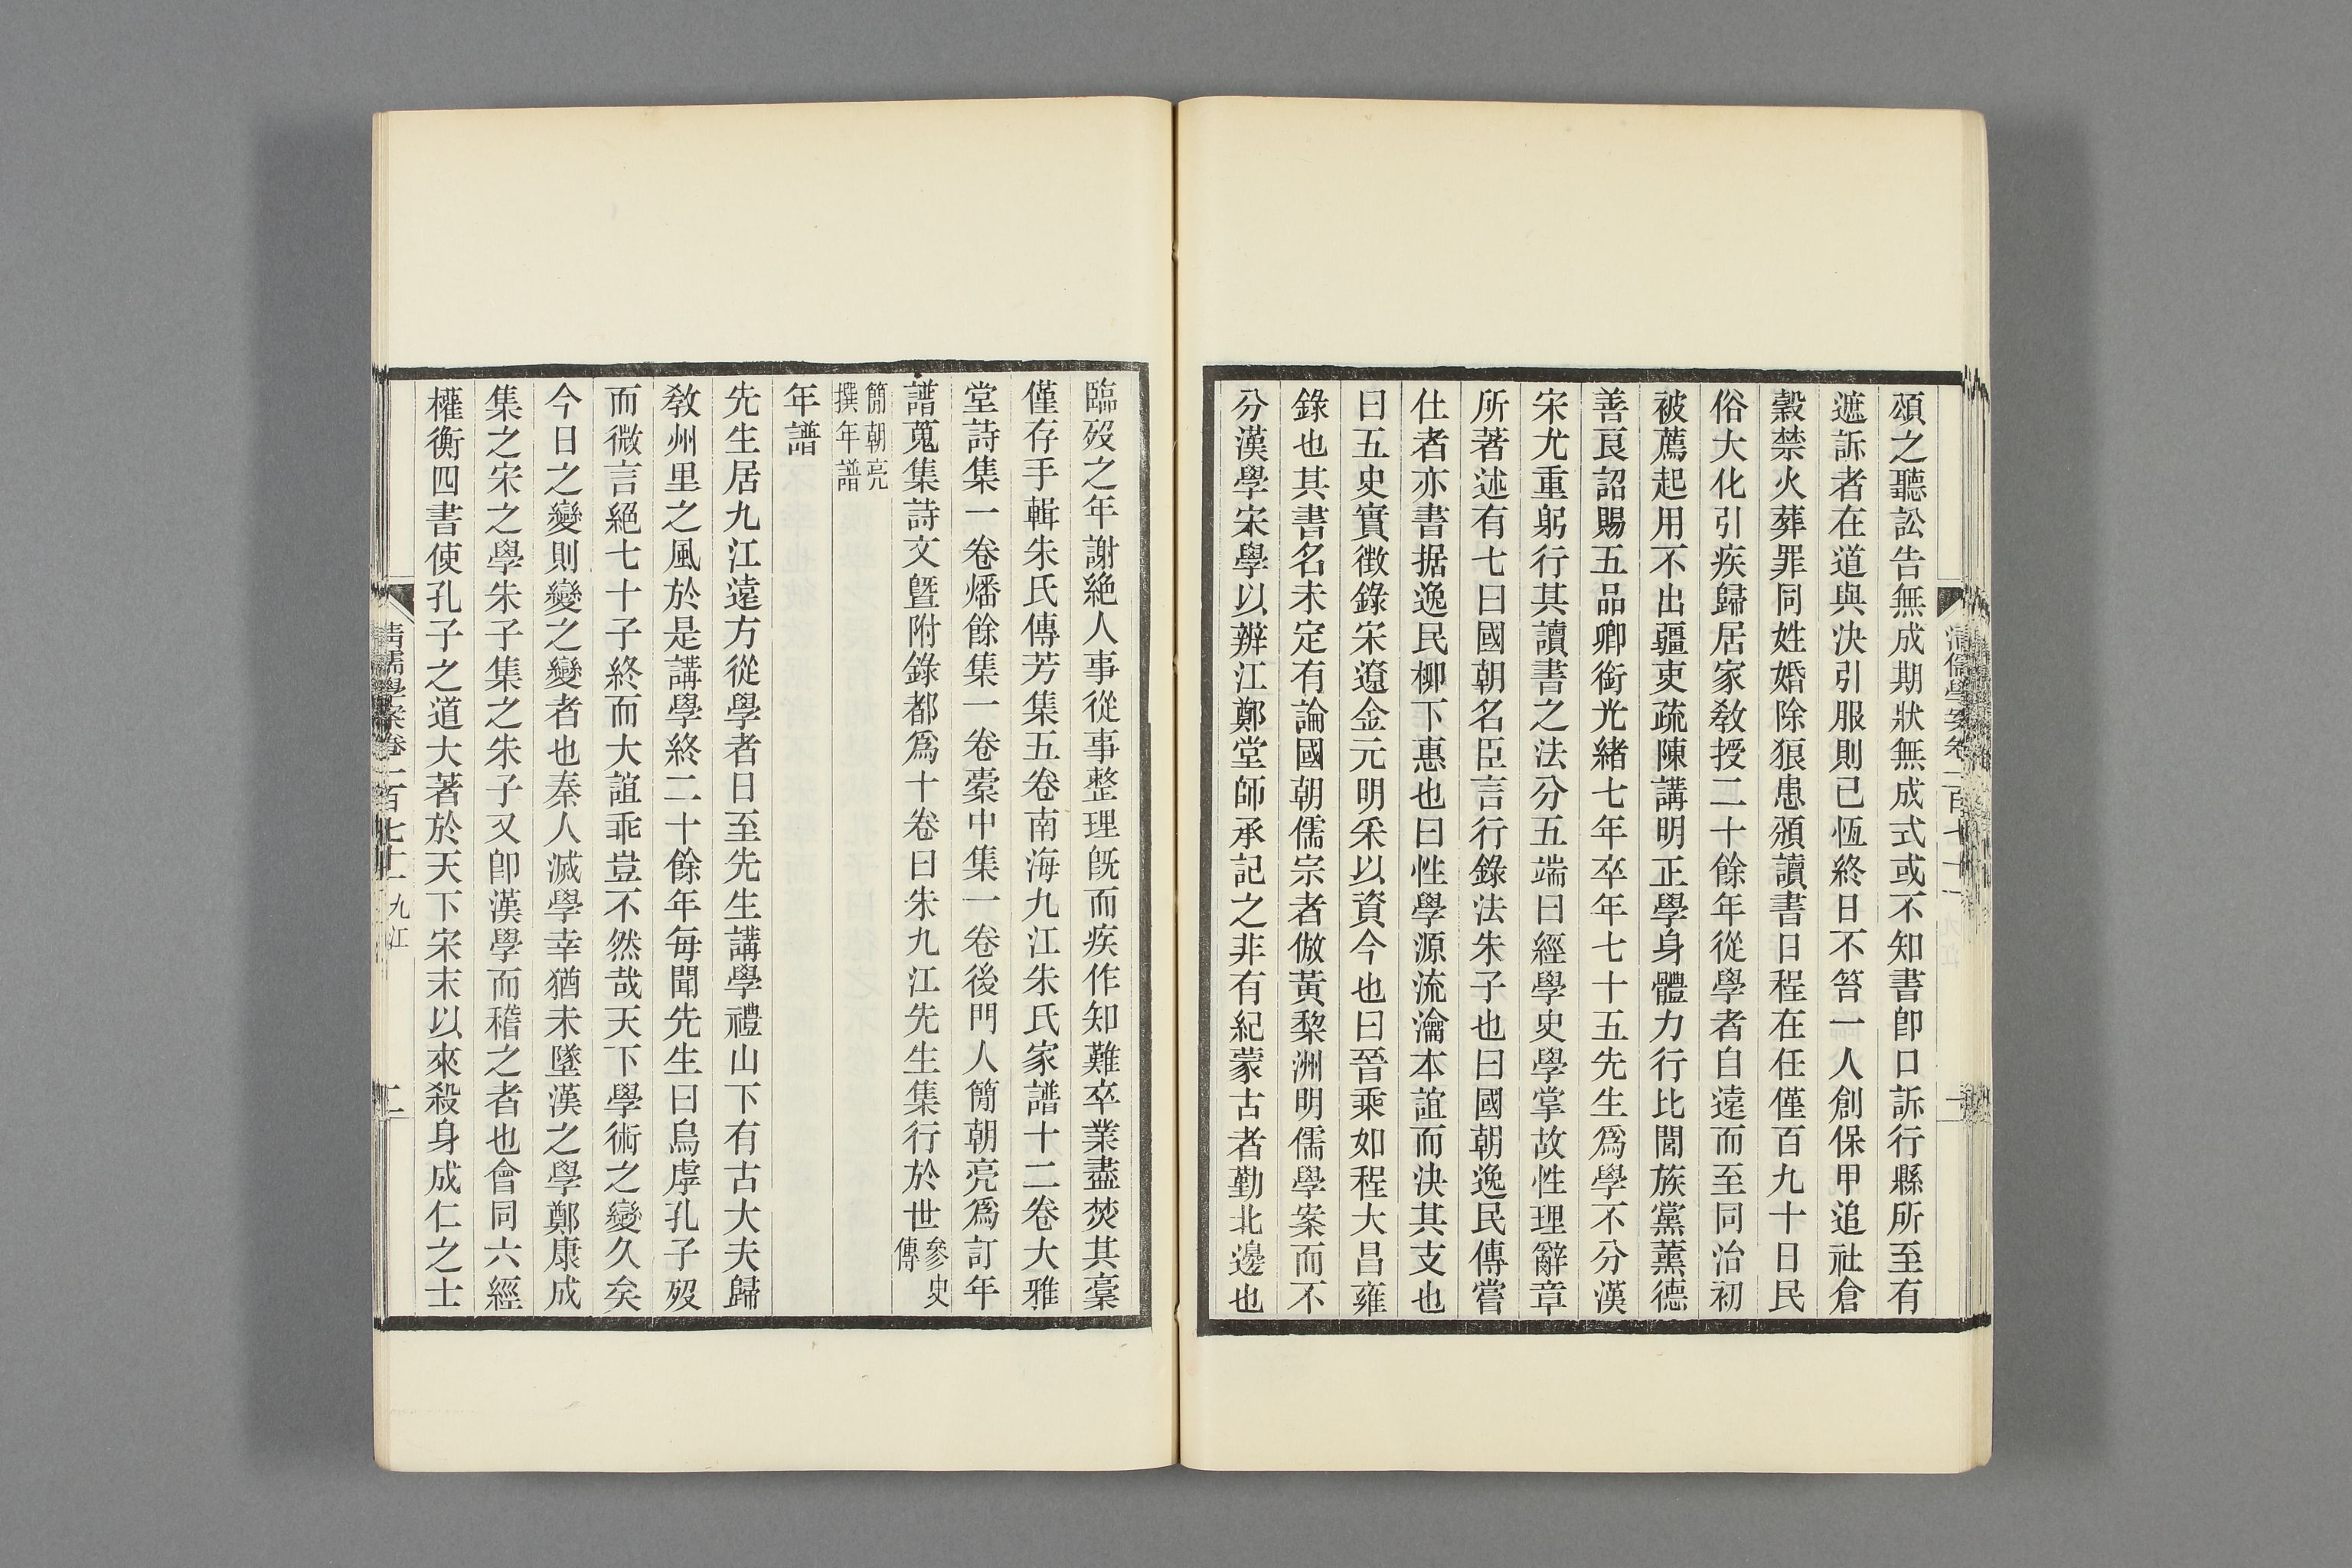 頌之聽訟告無成期狀無成式或不知書卽口訴行縣所至有
遮訴者在道與決引服則已恆終日不笞一人創保甲追社倉
穀禁火葬罪同姓婚除狼患頒讀書日程在任僅百九十日民
俗大化引疾歸居家敎授二十餘年從學者自遠而至同治初
被薦起用不出疆吏疏陳講明正學身體力行比閭族黨薰德
善良詔賜五品卿銜光緒七年卒年七十五先生爲學不分漢
宋尤重躬行其讀書之法分五端曰經學史學掌故性理辭章
所著述有七曰國朝名臣言行錄法朱子也曰國朝逸民傳嘗
仕者亦書据逸民柳下惠也曰性學源流瀹本誼而決其支也
曰五史實徵錄宋遼金元明釆以資今也曰晉乘如程大昌雍
錄也其書名未定有論國朝儒宗者倣黃黎洲明儒學案而不
分漢學宋學以辨江鄭堂師承記之非有紀蒙古者勤北邊也
臨歿之年謝絕人事從事整理旣而疾作知難卒業盡焚其稾
僅存手輯朱氏傳芳集五卷南海九江朱氏家譜十二卷大雅
堂詩集一卷燔餘集一卷槖中集一卷後門人簡朝亮爲訂年
譜蒐集詩文曁附錄都爲十卷曰朱九江先生集行於世參史
傳
簡朝亮
撰年譜
年譜
先生居九江遠方從學者日至先生講學禮山下有古大夫歸
敎州里之風於是講學終二十餘年每聞先生曰烏虖孔子歿
而微言絕七十子終而大誼乖豈不然哉天下學術之變久矣
今日之變則變之變者也秦人滅學幸猶未墜漢之學鄭康成
集之宋之學朱子集之朱子又卽漢學而稽之者也會同六經
權衡四書使孔子之道大著於天下宋末以來殺身成仁之士
清儒學案卷一百七十一 九江
二